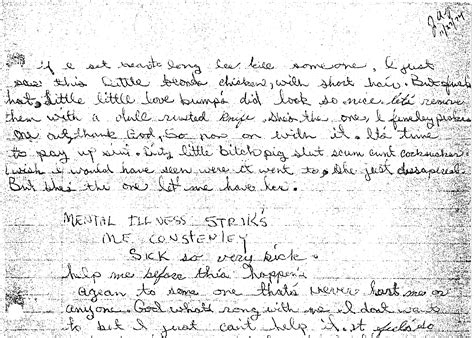 Jay
11/27/74
If I set hear to long Ice kill someone, I just
see this little blonde chicken, with short hair. But
hot, little little love bumps did look so nice lets remove
them with a dull rusted knife shes the one, I finnley
one out, thank God, So now on with it. It's time
to pay up sum. little bitch pig slut scum cunt cocksucker
I wish I would have seen were it went to, she just dissapered.
But she's the one let me have her.
MENTAL ILLNESS STRIKS
ME CONSTENLEY
SICK so very sick.
help me before this happen's
agean to some one thats never hurt me or
anyone. God whats rong with me I dont want
to but I just can't help it. It feels so